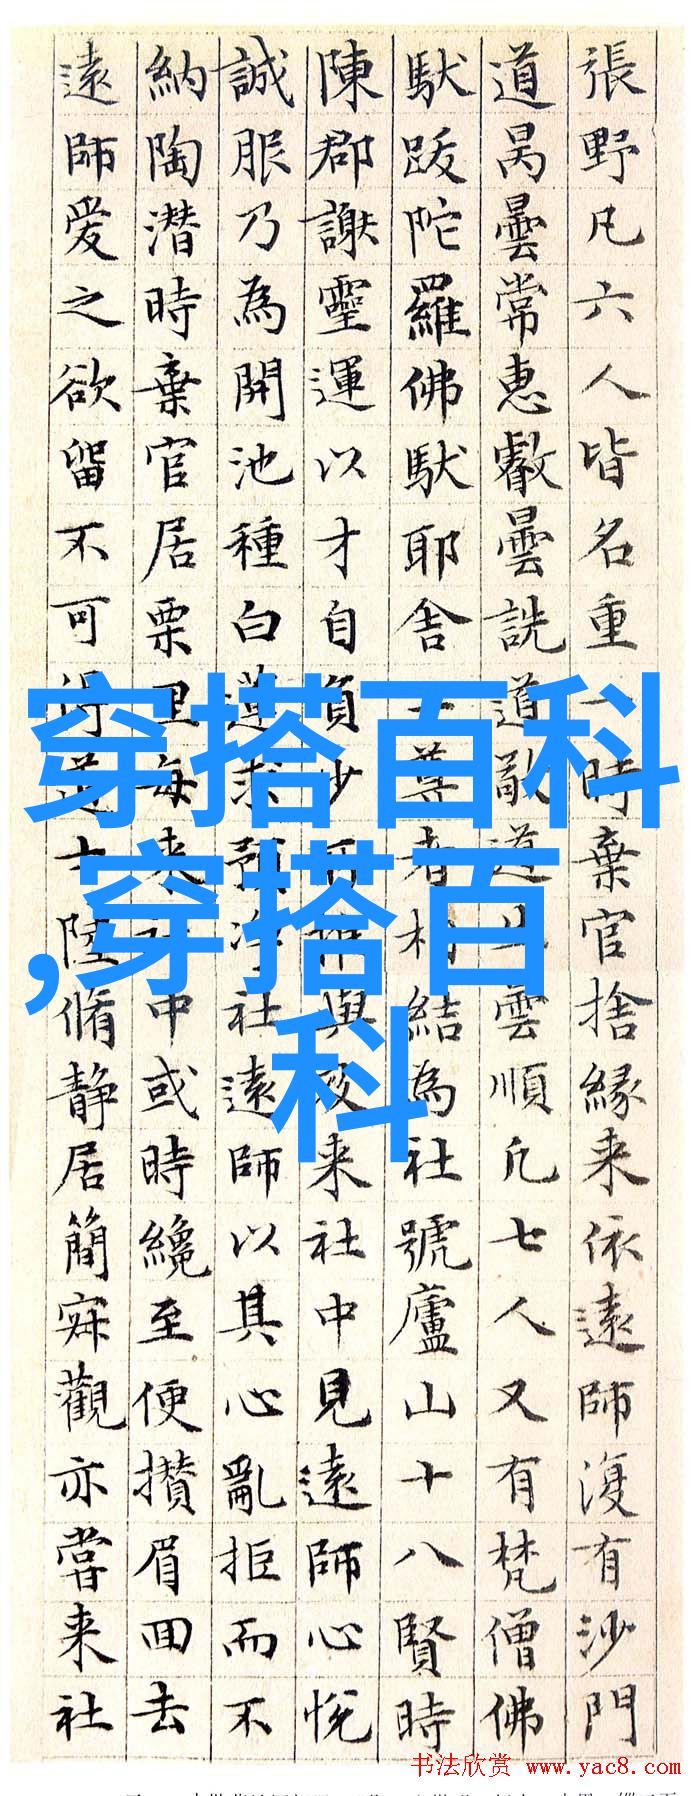 張野凡六人皆名重一時棄官捨緣来依遠師復有沙門
道昺曇常惠叡曇詵道敬道生雲順凡七人又有梵僧佛
馱跋陀羅佛馱耶舍二尊者相結為社號廬山十八賢時
陳郡謝靈運以才自負少所推與及来社中見遠師心悅
誠服乃為開池種白蓮求預净社遠師以其心亂拒而不
納陶潛時棄官居栗里每来社中或時纔至便攢眉回去
遠師爱之欲留不可得道士陸脩静居簡寂觀亦嘗来社
穿搭百科
,穿搭百
科
书法欣赏 www.yac8.com